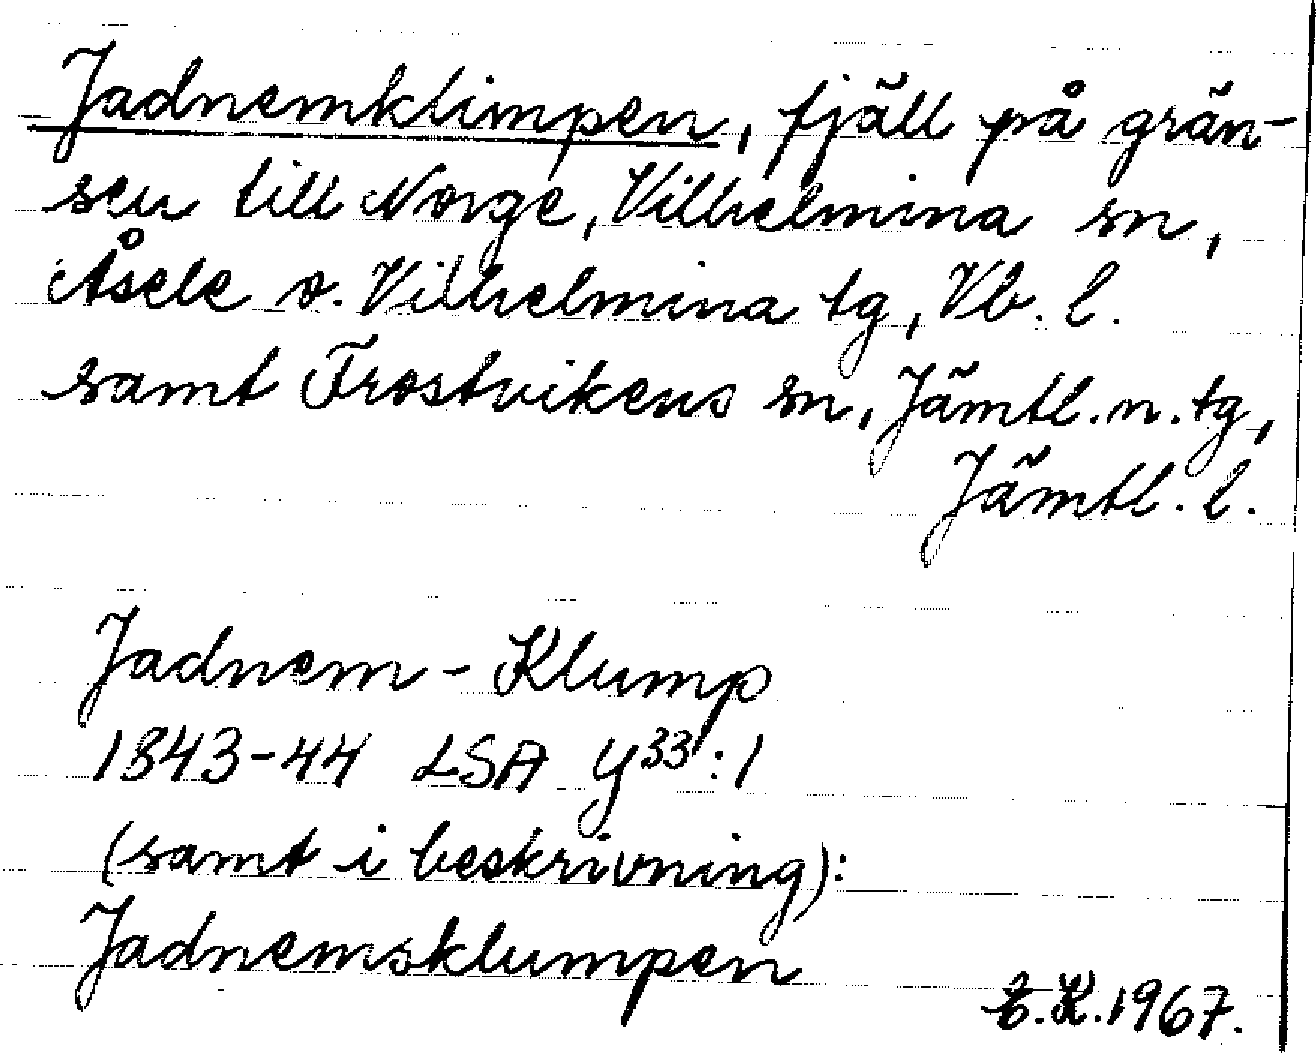 Jadnemklimpen, fjäll på grän-
sen till Norge, Vilhelmina sn,
Åsele o. Vilhelmina tg, Vb. l.
samt Frostvikens sn, Jämtl. n. tg,
Jämtl. l.
Jadnem-Klump
1843-44 LSA Y³³:1
(samt i beskrivning):
Jadnemsklumpen
K. 1967.